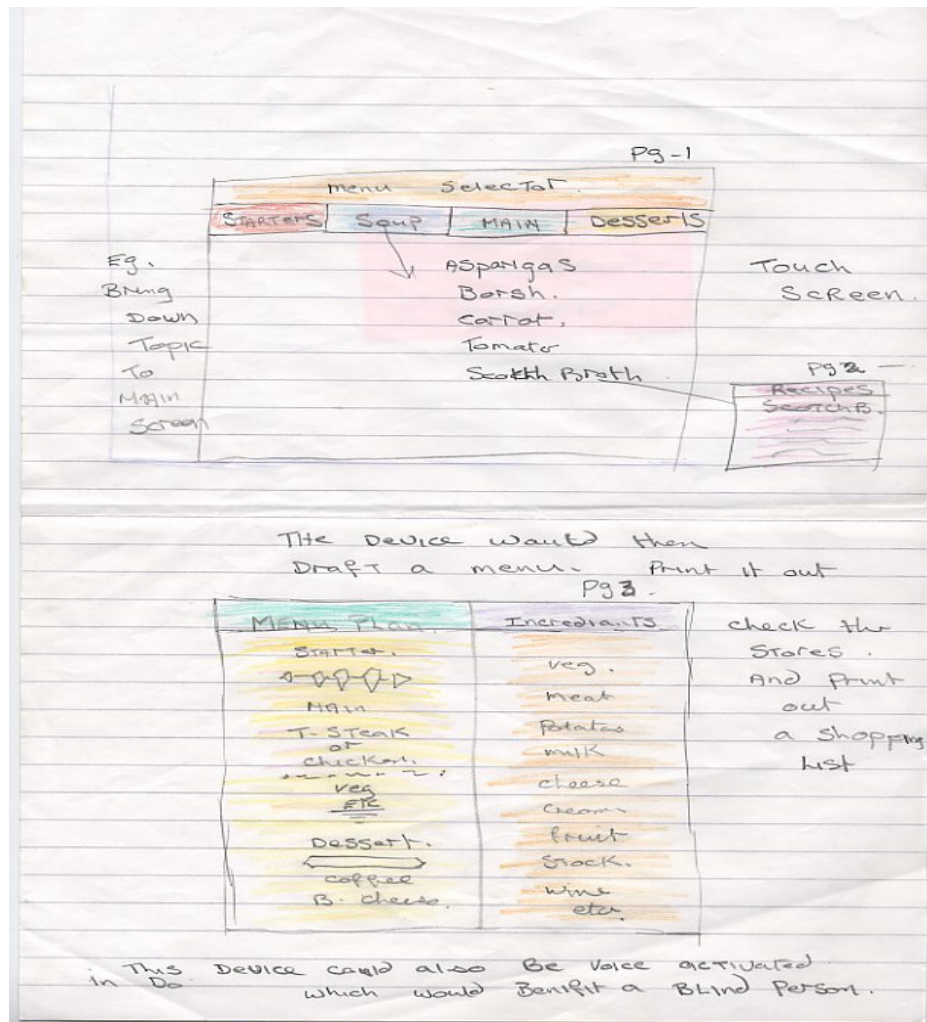 Pg-1
menu Selector.
STARTERS Soup MAIN Desserts
Eg.
Bring
Down
Topic
To
Main
Screen
Aspanigas
Borsh.
Carrot,
Tomato
Scotth Broth
Touch
Screen.
Pg 2 -
Recipes
Scotch B.
THe Device would then
Draft a menu. Print it out
Pg 3.
Menu Plan.
Starter.
Main
T-Steak
or
chicken.
veg
ETC
Dessert.
coffee
B. cheese.
Incrediants
veg.
meat
Potatos
milk
cheese
Cream
fruit
Stock.
wine
etc.
check the
Stores.
And Print
out
a shopping
List
This Device could also Be Voice activated
in Do which would Benifit a Blind Person.